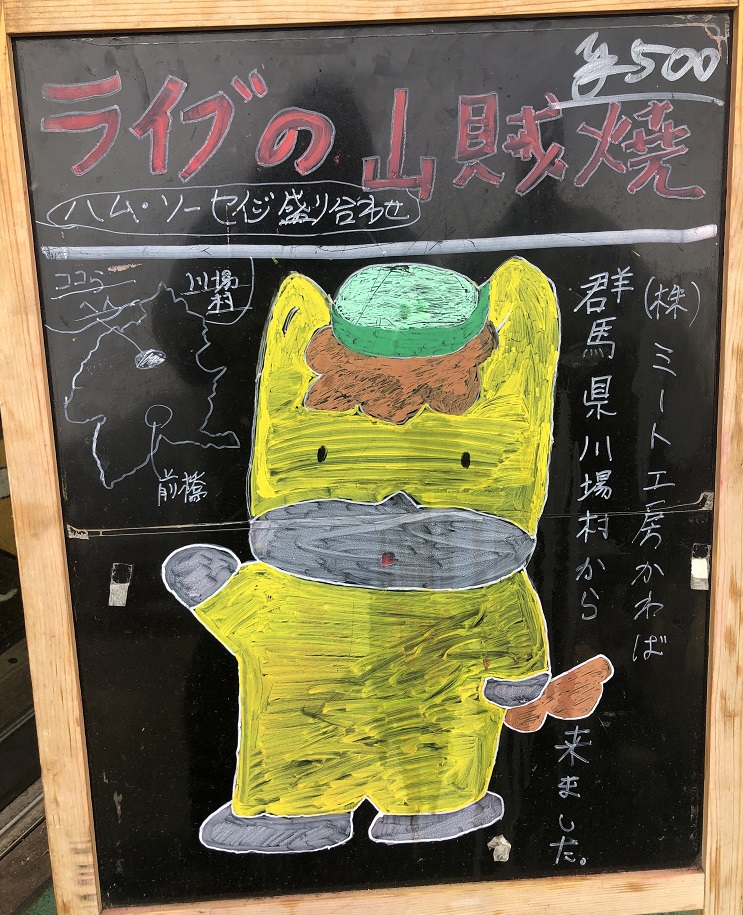 ¥500
ライブの山賊焼
ハム・ソーセイジ盛り合わせ
ココら
ヘん
川場
村
前橋
(株)ミート工房かわば
群馬県川場村から
来ました。